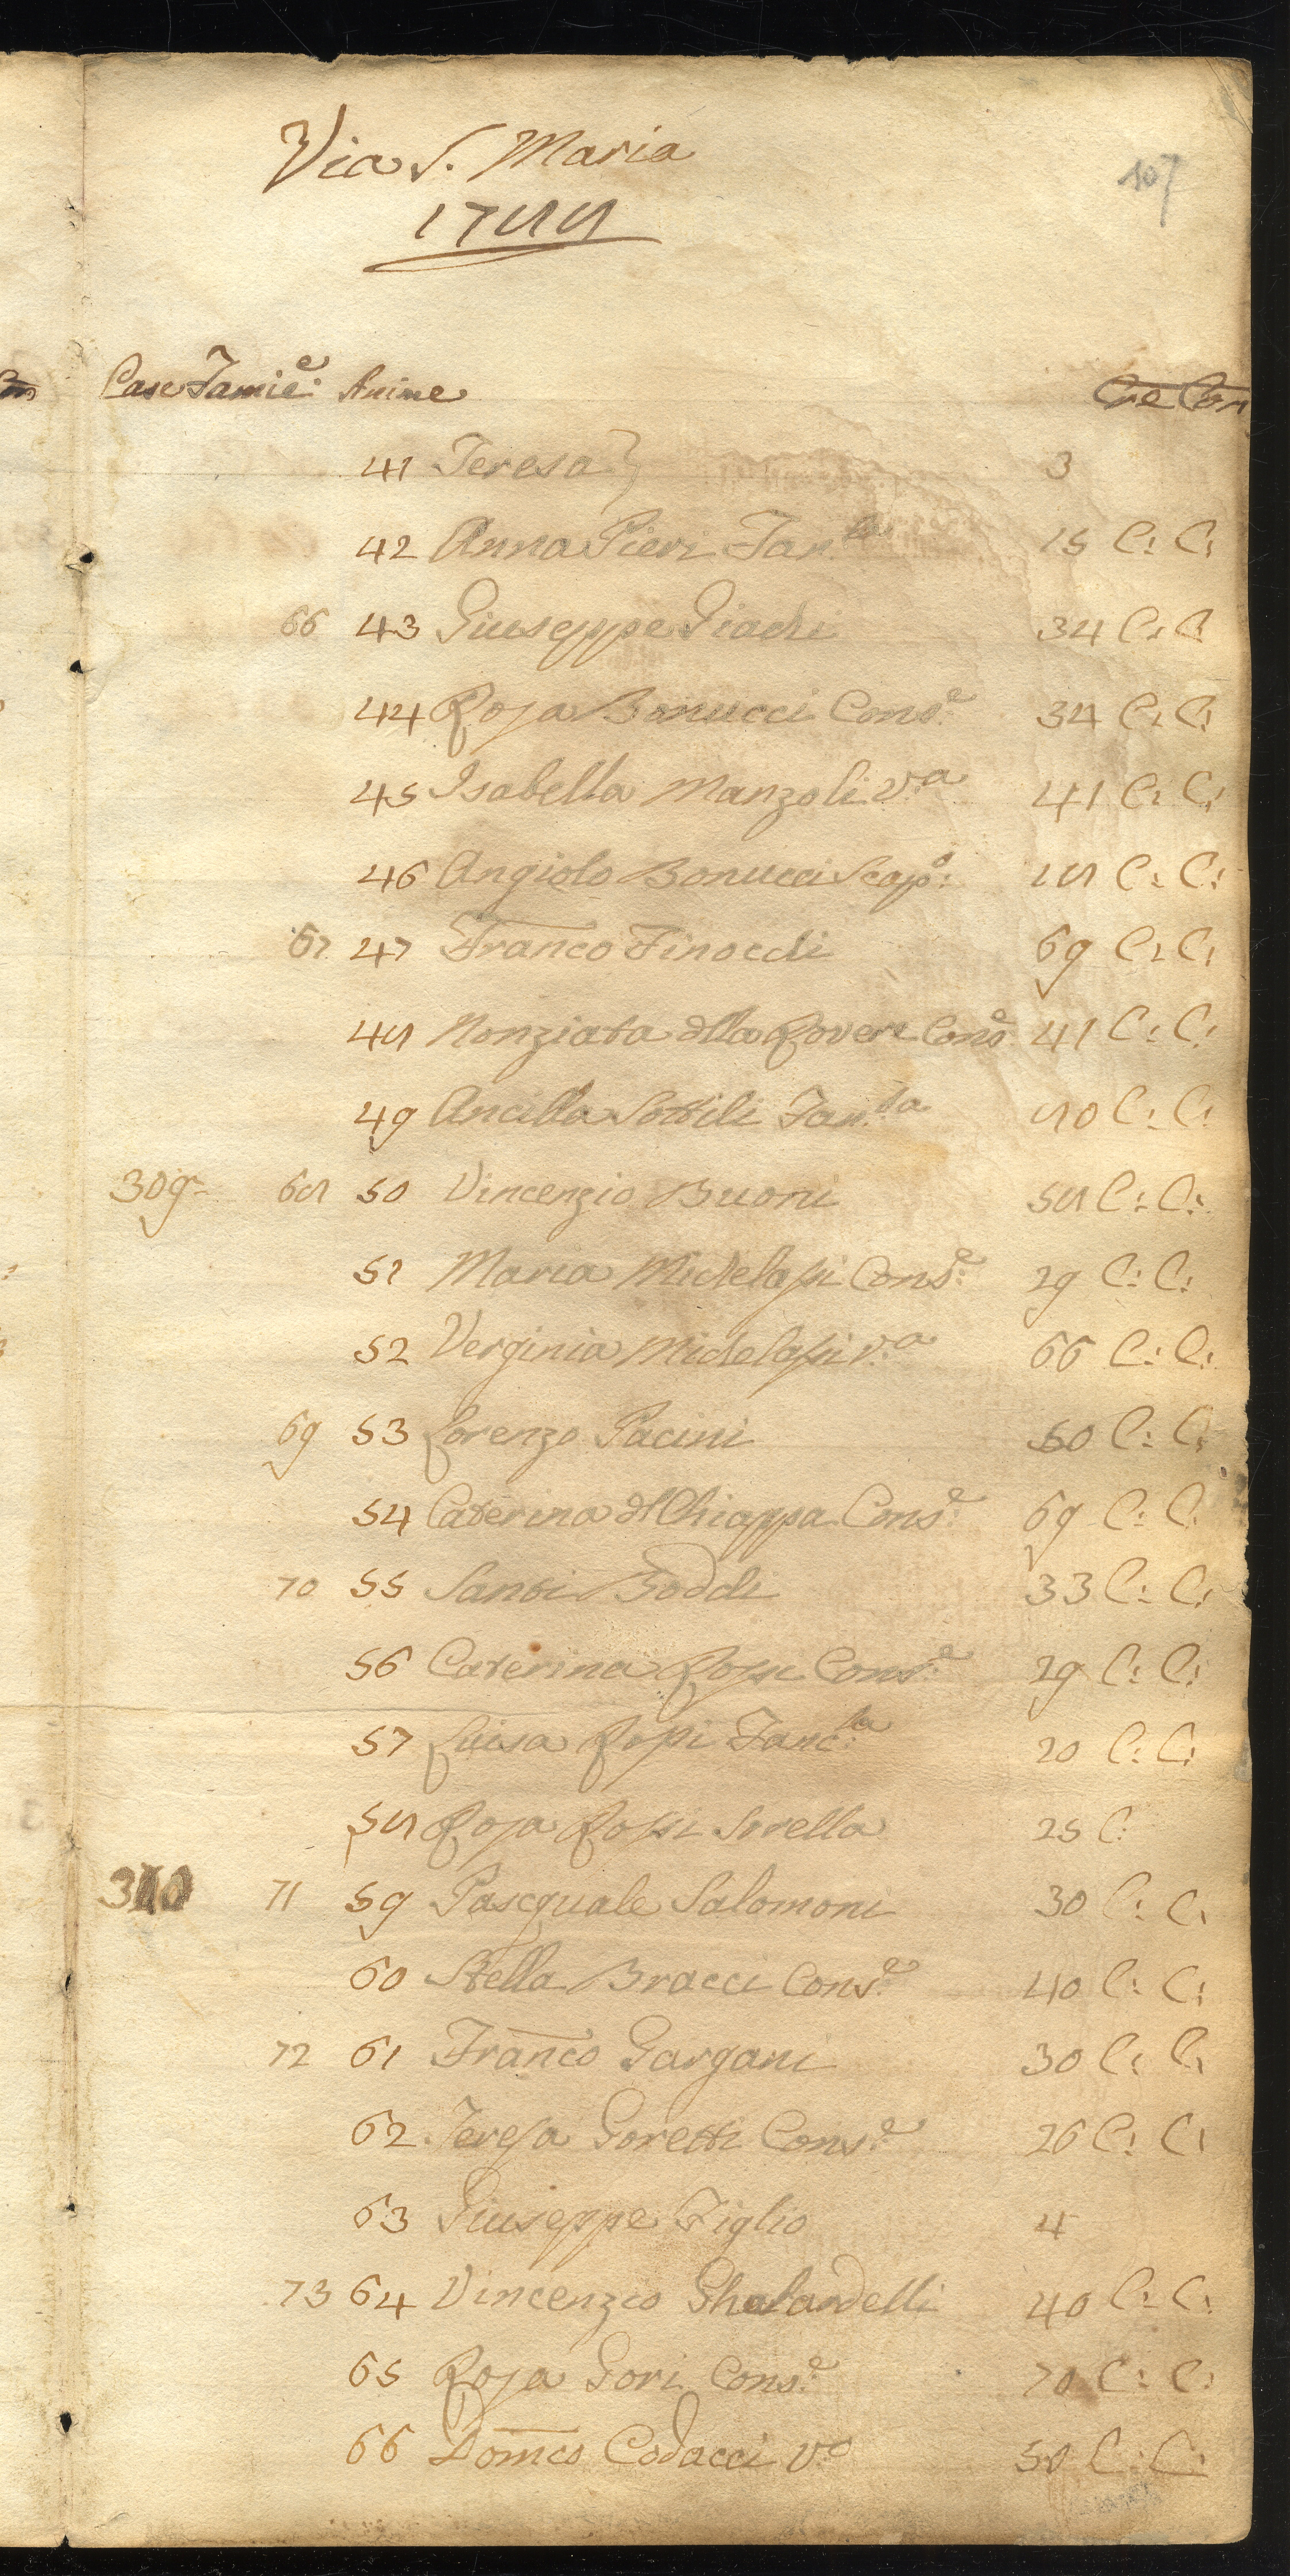 Via S. Maria
107
1788
Case Famie: Anime Cre Com
41 Teresa } 3
42 Anna Pieri Fan.la 15 C: C:
66 43 Giuseppe 34 C: C
44 Rosa Bonucci Cons.e 34 C: C:
45 Isabella Manzoli v.a 41 C: C:
46 Angiolo Bonucci Scap.o: 18 C: C:
67 47 Franco Finocchi 69 C: C:
48 Nonziata dlla Rovere Cons.e 41 C: C:
49 Ancilla Sottili Fan.la 80 C: C:
309 68 50 Vincenzio Buoni 58 C: C:
51 Maria Michelassi Cons.e 29 C: C:
52 Verginia Michelassi v.a 66 C: C:
69 53 Lorenzo Pacini 50 C: C:
54 Caterina dl Chiappa Cons.e 69 C: C:
70 55 Santi Bocchi 33 C: C:
56 Caterina Rossi Cons.e 29 C: C:
57 Luisa Rossi Fanc.la 20 C: C:
58 Rosa Rossi Sorella 25 C:
310 71 59 Pasquale Salomoni 30 C: C:
60 Stella Bracci Cons.e 40 C: C:
72 61 Franco Gargani 30 C: C:
62 Teresa Goretti Cons.e 26 C: C:
63 Giuseppe Figlio 4
73 64 Vincenzio Ghelardelli 40 C: C:
65 Rosa Gori Cons.e 70 C: C:
66 Domco Codacci v.o 50 C: C: